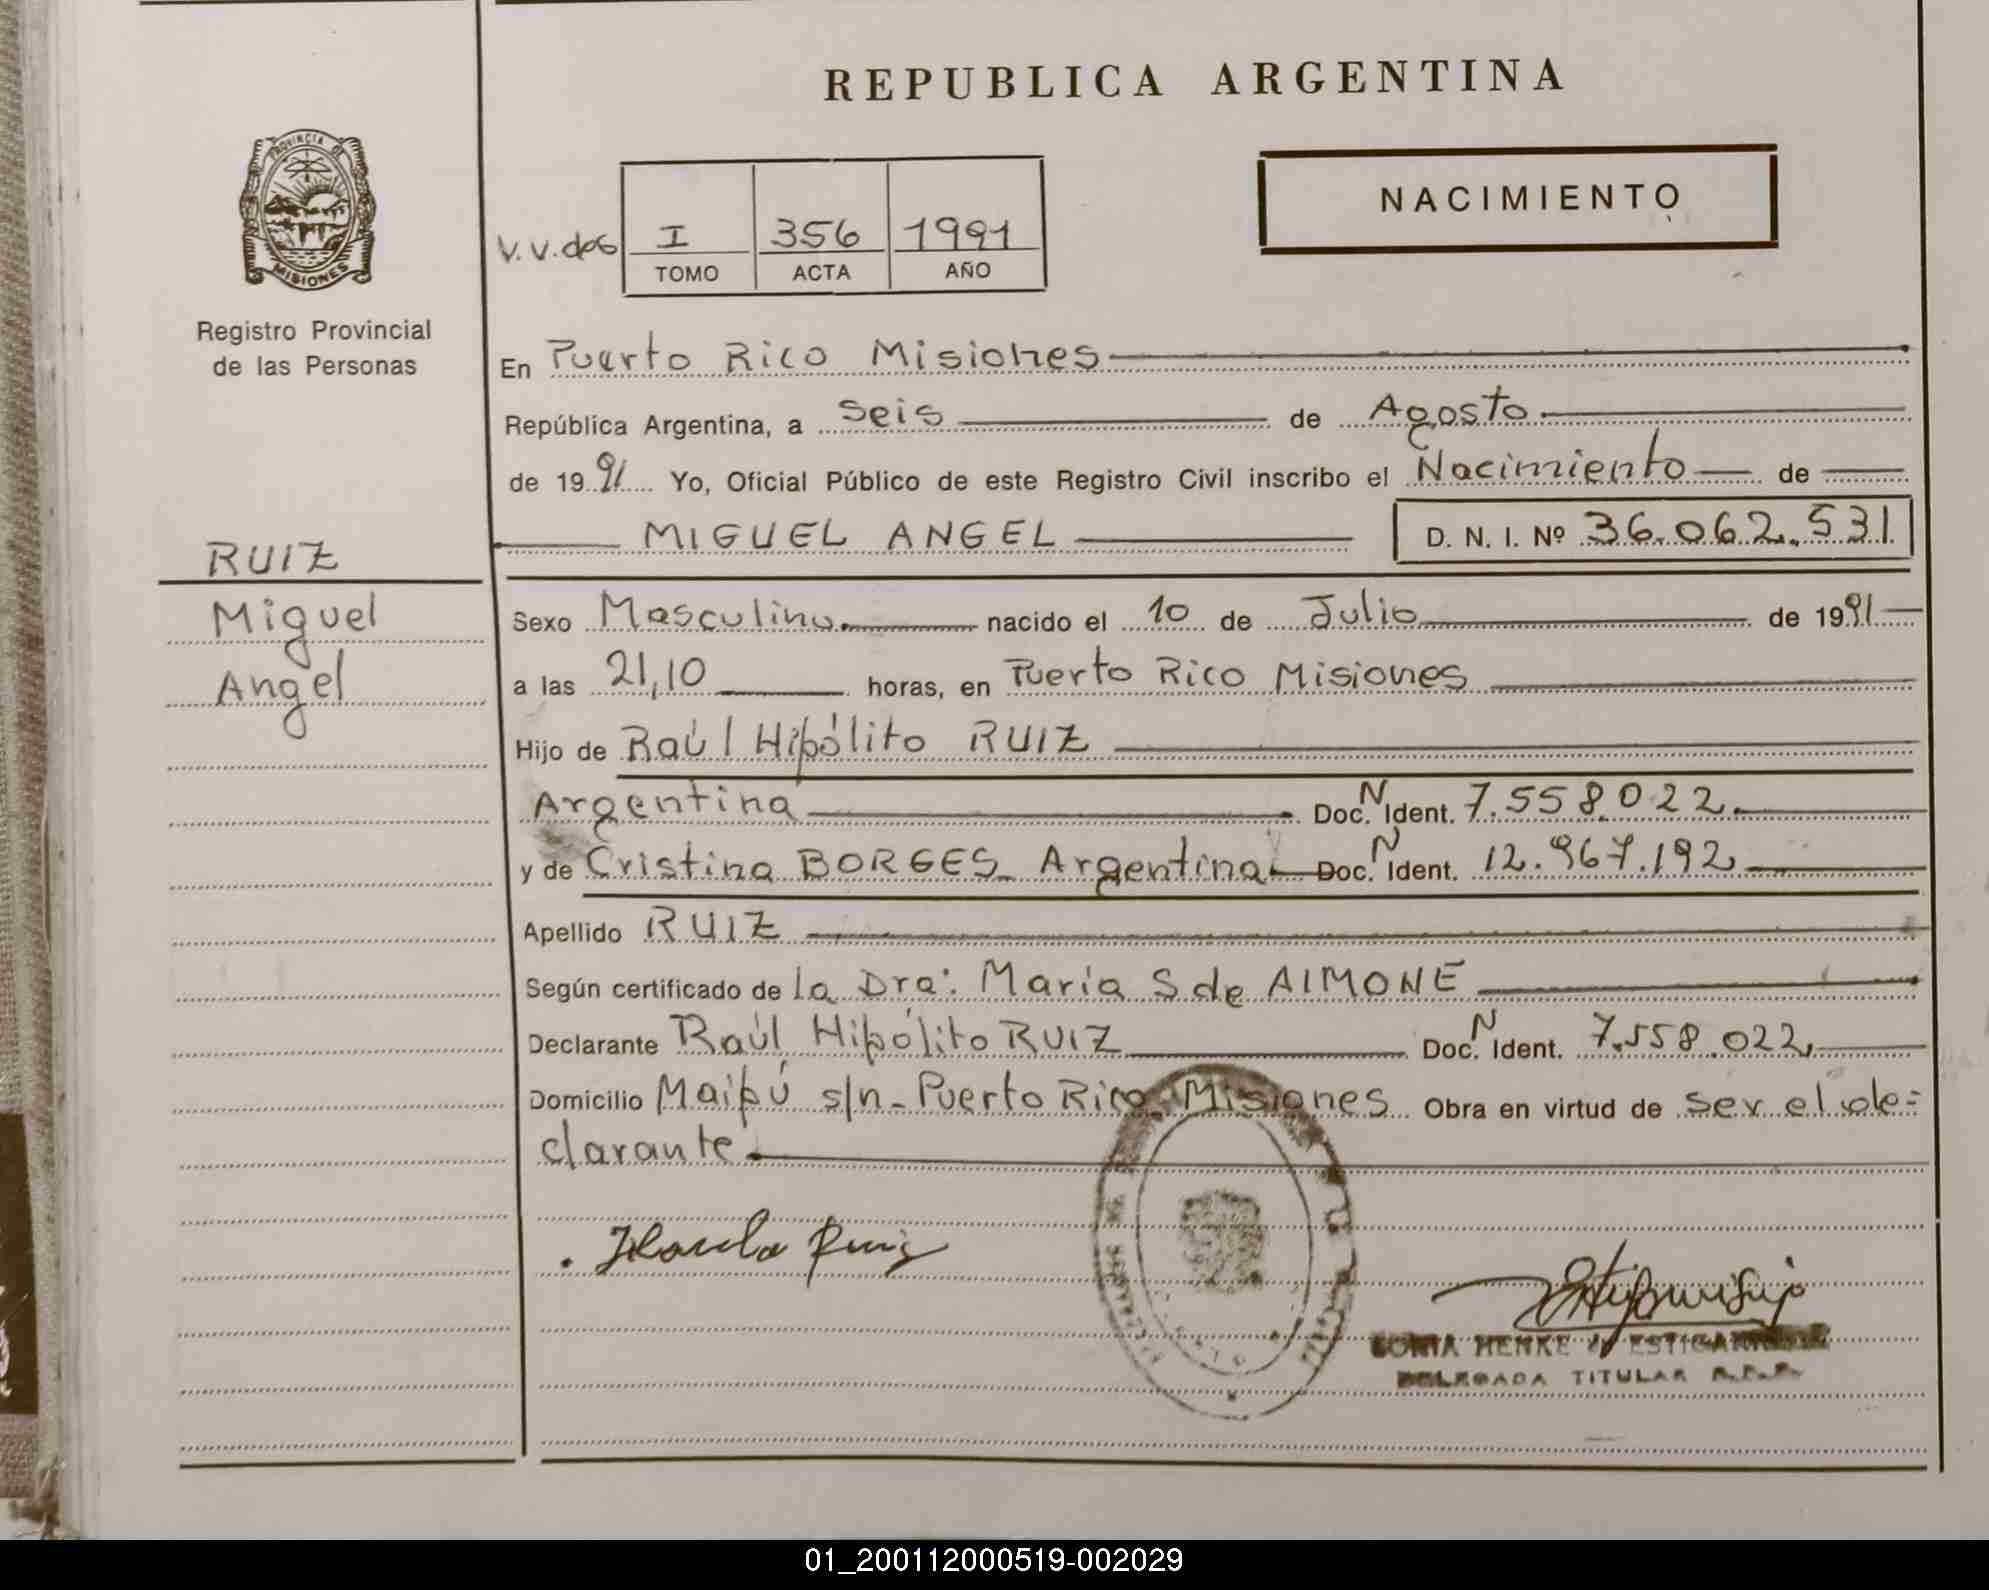 REPUBLICA ARGENTINA
PROVINCIA DE
MISIONES
Registro Provincial
de las Personas
V.V.dos
I 356 1991
TOMO ACTA AÑO
NACIMIENTO
En Puerto Rico Misiones
República Argentina, a Seis de Agosto
de 1991 Yo, Oficial Público de este Registro Civil inscribo el Nacimiento de
MIGUEL ANGEL D. N. I. Nº 36.062.531
RUIZ
Miguel
Angel
Sexo Masculino nacido el 10 de Julio de 1991
a las 21,10 horas, en Puerto Rico Misiones
Hijo de Raúl Hipólito RUIZ
Argentina Doc. N Ident. 7.558.022.
y de Cristina BORGES Argentina Doc. N Ident. 12.967.192
Apellido RUIZ
Según certificado de la Dra: María S de AIMONE
Declarante Raúl Hipólito RUIZ Doc. N Ident. 7.558.022
Domicilio Maipú s/n - Puerto Rico Misiones Obra en virtud de ser el de=
clarante
Ruiz
SONIA HENKE de
DELEGADA TITULAR R.P.P.
01_200112000519-002029